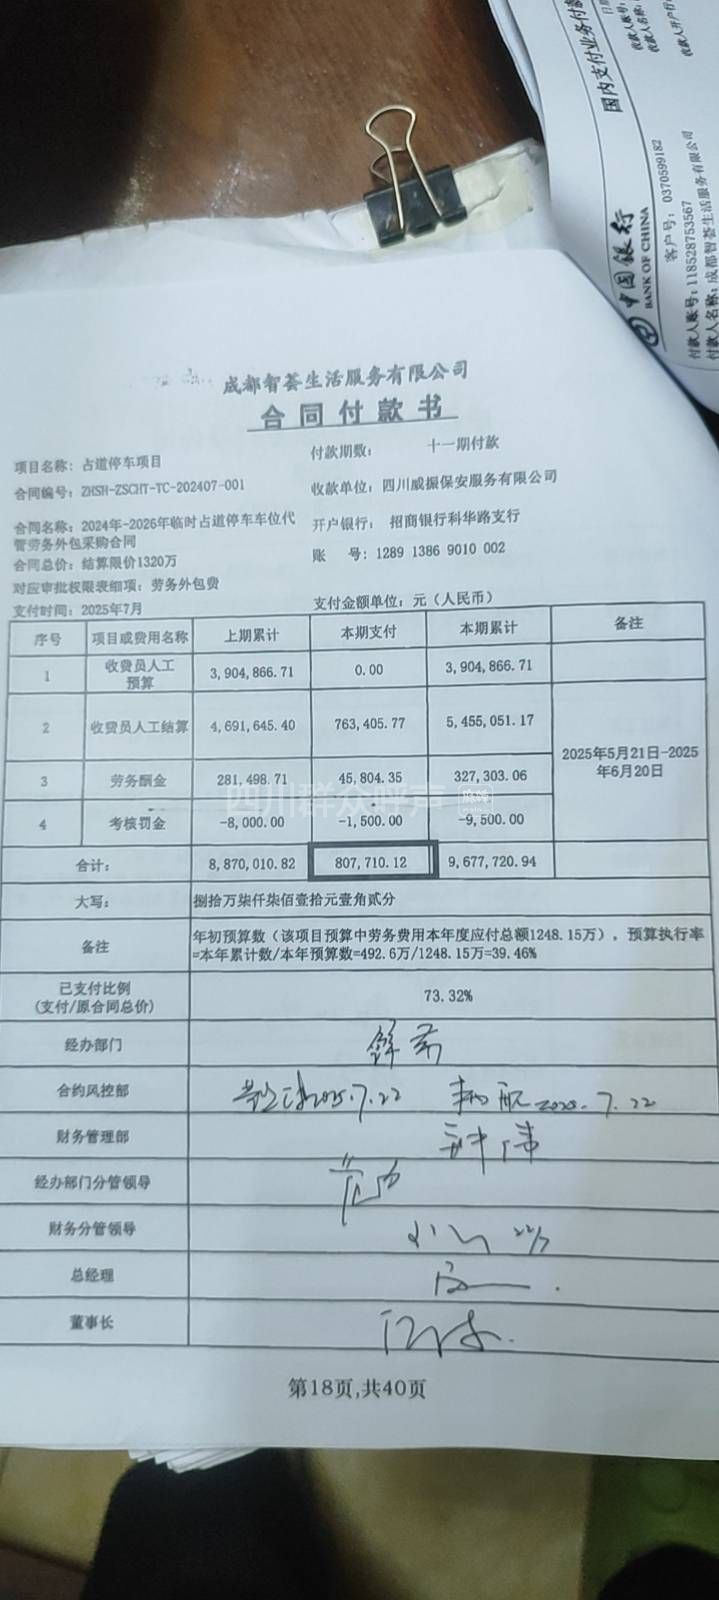 国内支付业务付款
中国银行
BANK OF CHINA
客户号：0370599182
付款人账号：118528753567
付款人名称：成都智荟生活服务有限公司
收款人账号：
收款人名称：
收款人开户行：
成都智荟生活服务有限公司
合同付款书
项目名称：占道停车项目
付款期数： 十一期付款
合同编号：ZHSH-ZSCHT-TC-202407-001
收款单位：四川威振保安服务有限公司
合同名称：2024年-2026年临时占道停车车位代
管劳务外包采购合同
开户银行： 招商银行科华路支行
合同总价：结算限价1320万
账 号：1289 1386 9010 002
对应审批权限表细项：劳务外包费
支付时间：2025年7月
支付金额单位：元（人民币）
序号 项目或费用名称 上期累计 本期支付 本期累计 备注
1 收费员人工预算 3,904,866.71 0.00 3,904,866.71
2 收费员人工结算 4,691,645.40 763,405.77 5,455,051.17
2025年5月21日-2025
年6月20日
3 劳务酬金 281,498.71 45,804.35 327,303.06
4 考核罚金 -8,000.00 -1,500.00 -9,500.00
合计： 8,870,010.82 807,710.12 9,677,720.94
大写： 捌拾万柒仟柒佰壹拾元壹角贰分
备注 年初预算数（该项目预算中劳务费用本年度应付总额1248.15万），预算执行率
=本年累计数/本年预算数=492.6万/1248.15万=39.46%
已支付比例
(支付/原合同总价) 73.32%
经办部门
合约风控部 2025.7.22 2025.7.22
财务管理部
经办部门分管领导
财务分管领导 22/7
总经理
董事长
第18页,共40页
四川群众呼声